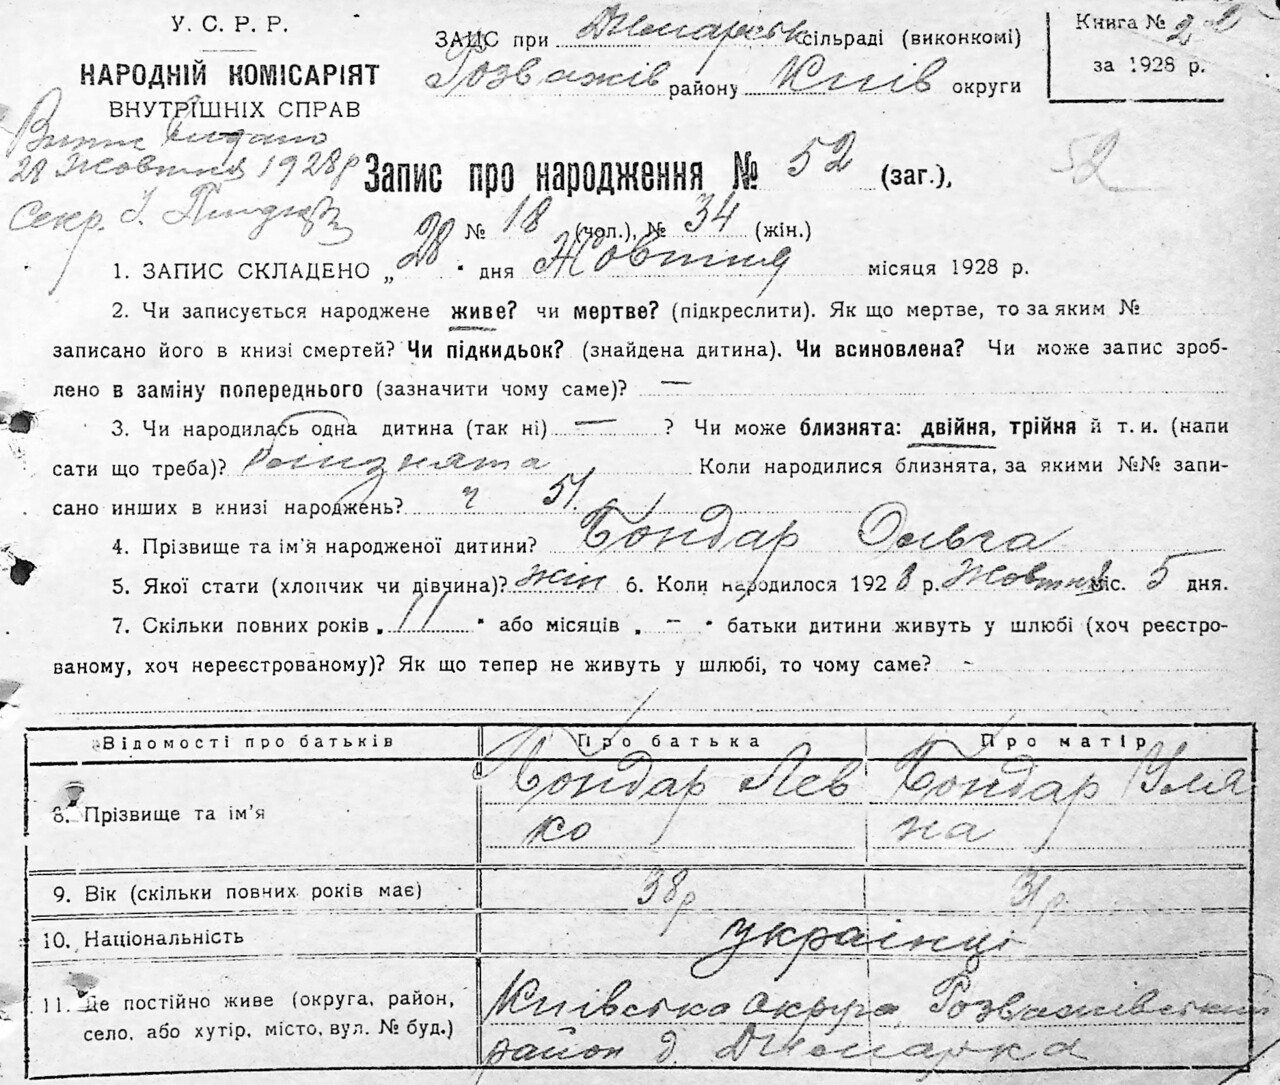 У. С. Р. Р.
НАРОДНІЙ КОМІСАРІЯТ
ВНУТРІШНІХ СПРАВ
Випис видано
28 Жовтня 1928 р
Секр. І.
ЗАЦС при Димарськ сільраді (виконкомі)
Розважів району Київ округи
Книга № 2
за 1928 р.
Запис про народження № 52 (заг.),
52
№ 18 (чол.), № 34 (жін.)
1. ЗАПИС СКЛАДЕНО „28" дня Жовтня місяця 1928 р.
2. Чи записується народжене живе? чи мертве? (підкреслити). Як що мертве, то за яким №
записано його в книзі смертей? Чи підкидьок? (знайдена дитина). Чи всиновлена? Чи може запис зроб-
лено в заміну попереднього (зазначити чому саме)? —
3. Чи народилась одна дитина (так ні) — ? Чи може близнята: двійня, трійня й т. и. (напи
сати що треба)? близнята Коли народилися близнята, за якими №№ запи-
сано инших в книзі народжень? ч 51.
4. Прізвище та ім'я народженої дитини? Бондар Ольга
5. Якої стати (хлопчик чи дівчина)? жін 6. Коли народилося 1928 р. Жовтня міс. 5 дня.
7. Скільки повних років „11" або місяців „—" батьки дитини живуть у шлюбі (хоч реєстро-
ваному, хоч нереєстрованому)? Як що тепер не живуть у шлюбі, то чому саме? -
Відомості про батьків Про батька Про матір
8. Прізвище та ім'я Бондар Лев Бондар Уля
ко на
9. Вік (скільки повних років має) 38 р 31 р.
10. Національність українці
11. Де постійно живе (округа, район, Київська округа, Розважівський
село, або хутір, місто, вул. № буд.) район д. Димарка